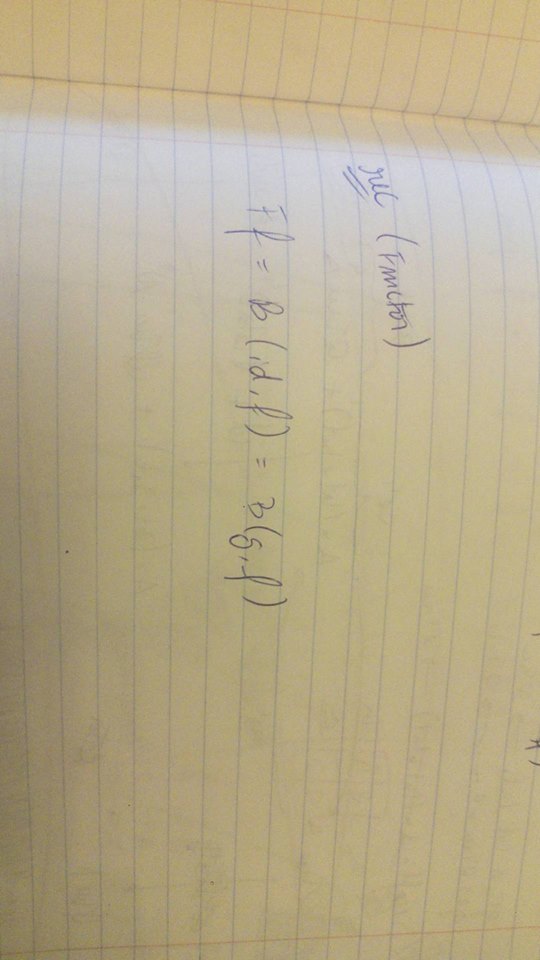 rec (Functor)
Ff = B (id, f) = B(g, f)